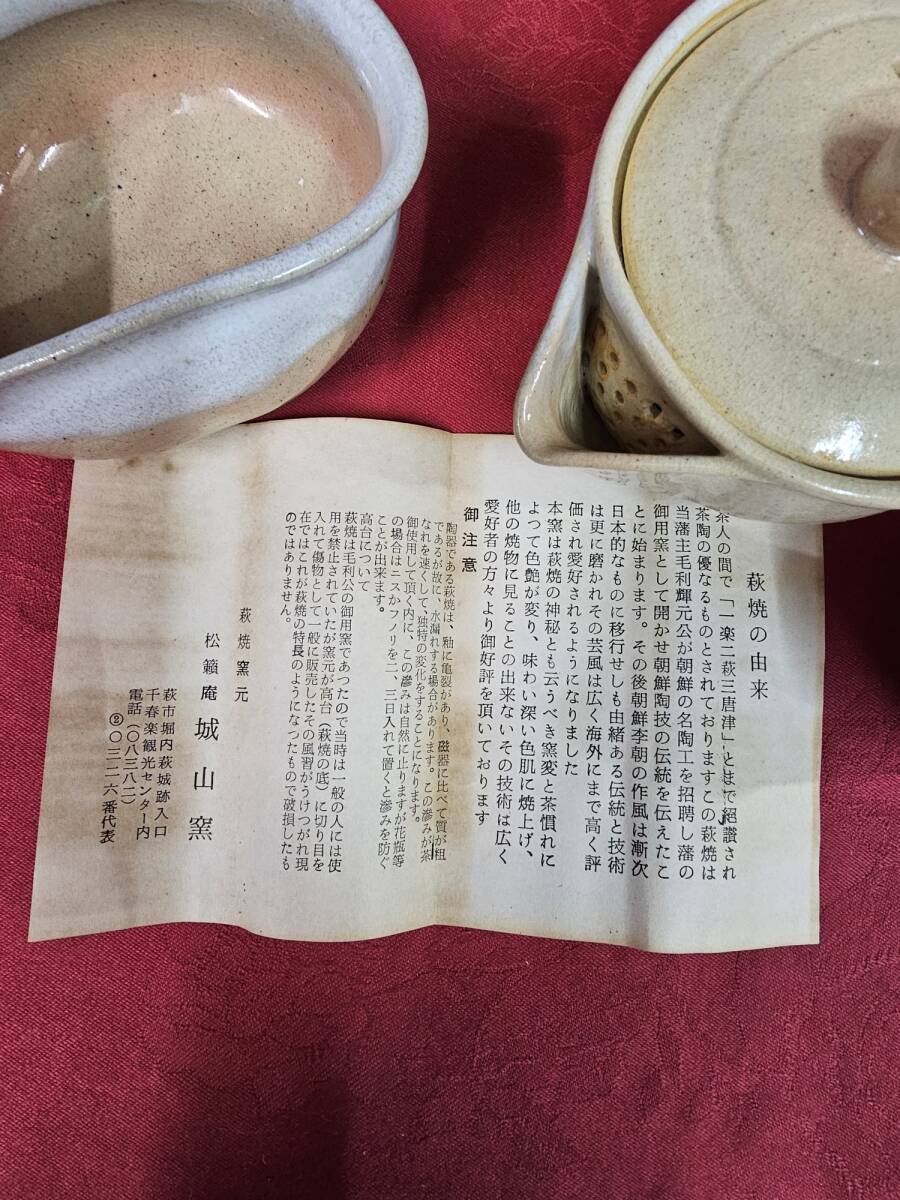 萩焼の由来
茶人の間で「一楽二萩三唐津」とまで絕讃され
茶陶の優なるものとされておりますこの萩焼は
当藩主毛利輝元公が朝鮮の名陶工を招聘し藩の
御用窯として開かせ朝鮮陶技の伝統を伝えたこ
とに始まります。その後朝鮮李朝の作風は漸次
日本的なものに移行せしも由緒ある伝統と技術
は更に磨かれその芸風は広く海外にまで高く評
価され愛好されるようになりました
本窯は萩焼の神秘とも云うべき窯変と茶慣れに
よつて色艶が変り、味わい深い色肌に焼上げ、
他の焼物に見ることの出来ないその技術は広く
愛好者の方々より御好評を頂いております
御注意
陶器である萩焼は、釉に亀裂があり、磁器に比べて質が粗
であるが故に、水漏れする場合があります。この滲みが茶
なれを速くして、独特の変化をすることになります。
御使用して頂く内に、この滲みは自然に止りますが花瓶等
の場合はニスかフノリを二、三日入れて置くと滲みを防ぐ
ことが出来ます。
高台について
萩焼は毛利公の御用窯であつたので当時は一般の人には使
用を禁止されていたが窯元が高台（萩焼の底）に切り目を
入れて傷物として一般に販売したその風習がうけつがれ現
在ではこれが萩焼の特長のようになつたもので破損したも
のではありません。
萩焼窯元
松籟庵 城山窯
萩市堀内萩城跡入口
千春楽観光センター内
電話（〇八三八二）
②〇三二六番代表